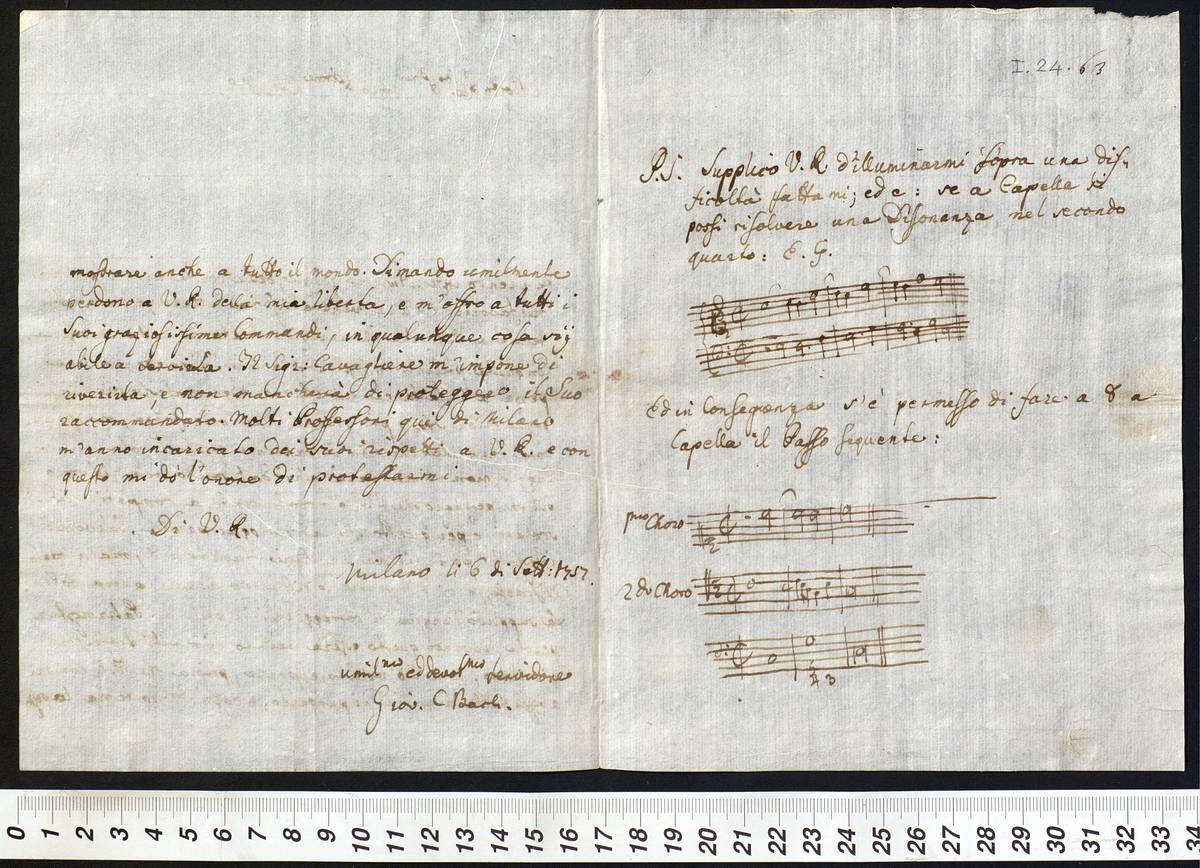 mostrare anche a tutto il mondo. Dimando umilmente
perdono a V. R. della mia liberta, e m'offro a tutti i
Suoi graziosissimi Commandi, in qualunque cosa sij
abile a servirla. Il Sigr: Cavagliere m'impone di
riverirla, e non mancherà di proteggere il Suo
raccommandato. Molti Proffessori qui di Milano
m'anno incaricato dei suoi rispetti a V. R. e con
questo mi dò l'onore di protestarmi
Di V. R.
Milano li 6 di Sett: 1757.
umilmo ed devotmo servidore
Giov. C Bach.
I. 24. 63
P.S. Supplico V. R d'illuminarmi sopra una dif-
ficoltà fattami; ed e: se a Capella si
possi risolvere una Dissonanza nel secondo
quarto: E. G.
Ed in Conseqenza s'é permesso di fare a 8 a
Capella il Passo sequente:
pmo Choro
2do Choro
4 3